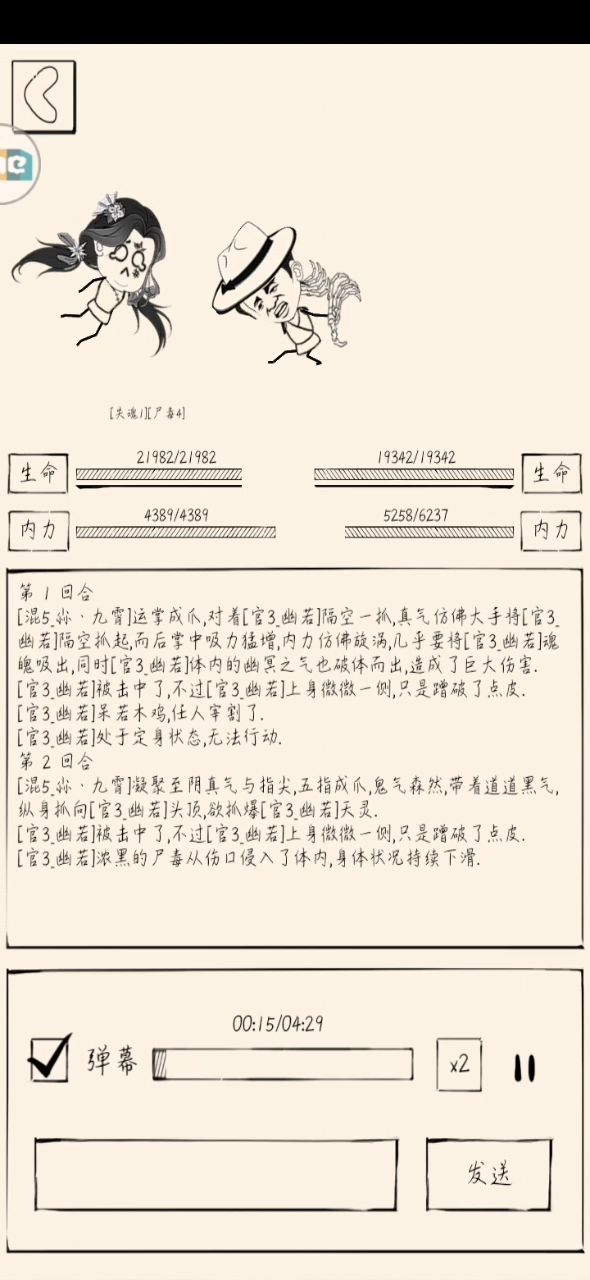 [失魂1][尸毒4]
21982/21982
19342/19342
生命
生命
4389/4389
5258/6237
内力
内力
第 1 回合
[混5_祢·九霄]运掌成爪,对着[官3_幽若]隔空一抓,真气仿佛大手将[官3_
幽若]隔空抓起,而后掌中吸力猛增,内力仿佛旋涡,几乎要将[官3_幽若]魂
魄吸出,同时[官3_幽若]体内的幽冥之气也破体而出,造成了巨大伤害.
[官3_幽若]被击中了,不过[官3_幽若]上身微微一侧,只是蹭破了点皮.
[官3_幽若]呆若木鸡,任人宰割了.
[官3_幽若]处于定身状态,无法行动.
第 2 回合
[混5_祢·九霄]凝聚至阴真气与指尖,五指成爪,鬼气森然,带着道道黑气,
纵身抓向[官3_幽若]头顶,欲抓爆[官3_幽若]天灵.
[官3_幽若]被击中了,不过[官3_幽若]上身微微一侧,只是蹭破了点皮.
[官3_幽若]浓黑的尸毒从伤口侵入了体内,身体状况持续下滑.
00:15/04:29
弹幕
x2
发送